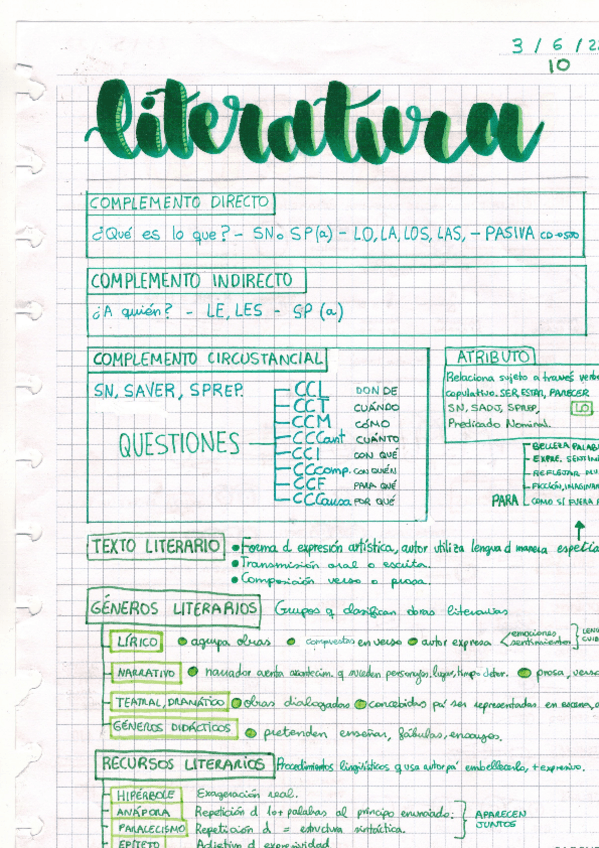 3 / 6 / 22
10
literatura
COMPLEMENTO DIRECTO
¿Qué es lo que? - SN o SP(a) - LO, LA, LOS, LAS, - PASIVA CD→SUJ
COMPLEMENTO INDIRECTO
¿A quién? - LE, LES - SP (a)
COMPLEMENTO CIRCUSTANCIAL
SN, SAVER, SPREP.
QUESTIONES
CCL DONDE
CCT CUÁNDO
CCM CÓMO
CCCant CUÁNTO
CCI CON QUÉ
CCcomp. CON QUIÉN
CCF PARA QUÉ
CCCausa POR QUÉ
ATRIBUTO
Relaciona sujeto a través verbo
copulativo. SER, ESTAR, PARECER
SN, SADJ, SPREP, LO
Predicado Nominal.
BELLEZA PALAB
EXPRE. SENTIM
REFLEJAR MU
FICCIÓN, IMAGINAR
PARA COMO SI FUERA
TEXTO LITERARIO
Forma d expresión artística, autor utiliza lengua d manera especia
Transmisión oral o escrita.
Composición verso o prosa.
GÉNEROS LITERARIOS Grupos q clasifican obras literarias
LÍRICO agrupa obras compuestas en verso autor expresa emociones sentimientos LENG
NARRATIVO narrador cuenta acontecim. q suceden personajes, lugar, tiempo deter. prosa, verso
TEATRAL, DRAMÁTICO obras dialogadas concebidas pa' ser representadas en escena, o
GÉNEROS DIDÁCTICOS pretenden enseñar, fábulas, ensayos.
RECURSOS LITERARIOS Procedimientos lingüísticos q usa autor pa' embellecerlo, + expresivo.
HIPÉRBOLE Exageración real.
ANÁFORA Repetición d 1 o + palabras al principo enunciado.
PARALELISMO Repetición d = estructura sintáctica.
APARECEN JUNTOS
EPÍTETO Adjetivo d expresividad